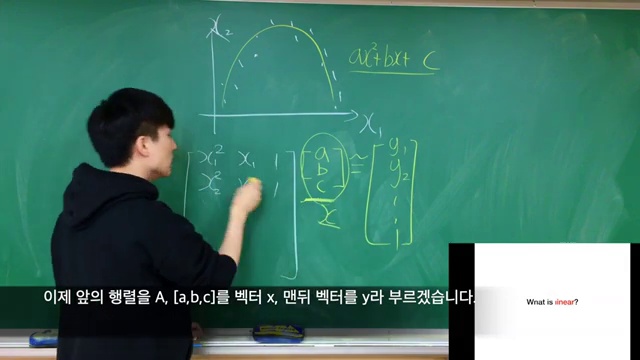 x₂
ax²+bx+ c
x₁
x₁² x₁ 1 a ≈ y₁
x₂² 1 b y₂
c
x
이제 앞의 행렬을 A, [a,b,c]를 벡터 x, 맨뒤 벡터를 y라 부르겠습니다.
What is linear?